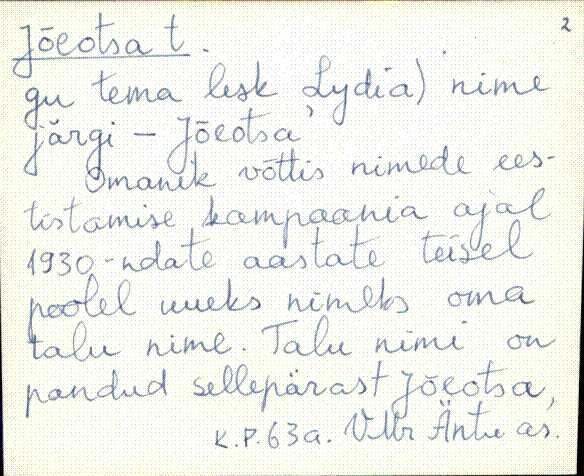 Jõeotsa t.
2
gu tema lesk Lydia) nime
järgi – Jõeotsa
Omanik võttis nimede ees-
tistamise kampaania ajal
1930-ndate aastate teisel
poolel uueks nimeks oma
talu nime. Talu nimi on
pandud sellepärast Jõeotsa,
K.P. 63a. VMr Äntu as.